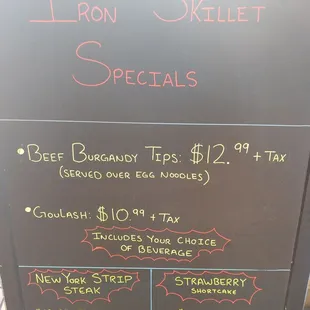 Iron Skillet
Specials
• Beef Burgandy Tips: $12.99 + Tax
(Served over egg noodles)
• Goulash: $10.99 + Tax
Includes your choice
of beverage
New York Strip
Steak
Strawberry
Shortcake